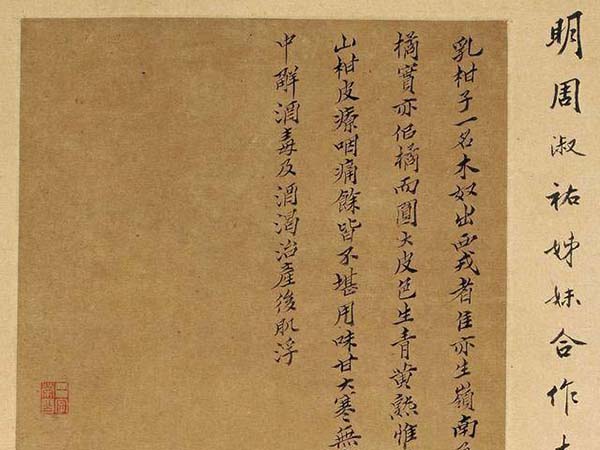 明周淑祐姊妹合作
乳柑子一名木奴出西戎者佳亦生嶺南
橘實亦佀橘而圓大皮色生青黄熟惟
山柑皮療咽痛餘皆不堪用味甘大寒無
中解酒毒及酒渴治產後肌浮